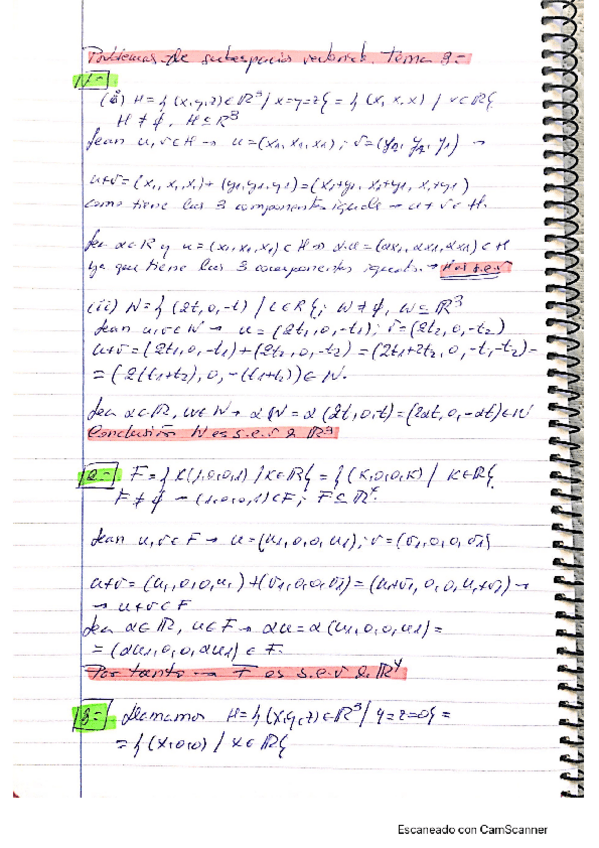 Problemas de subespacios vectoriales. Tema 3=
1=
(i) H={(x,y,z)∈ℝ³/x=y=z}={(x,x,x)/x∈ℝ}
H≠∅, H⊆ℝ³
Sean u,v∈H→ u=(x1,x1,x1); v=(y1,y1,y1) →
u+v=(x1,x1,x1)+(y1,y1,y1)=(x1+y1, x1+y1, x1+y1)
como tiene las 3 componentes iguales → u+v∈H.
Sea α∈ℝ y u=(x1,x1,x1)∈H→ α·u=(αx1,αx1,αx1)∈H
ya que tiene las 3 componentes iguales.→ H es s.e.v
(ii) W={(2t,0,-t)/t∈ℝ}; W≠∅, W⊆ℝ³
Sean u,v∈W→ u=(2t1,0,-t1); v=(2t2,0,-t2)
u+v=(2t1,0,-t1)+(2t2,0,-t2)=(2t1+2t2,0,-t1-t2)=
=(2(t1+t2),0,-(t1+t2))∈W.
Sea α∈ℝ, w∈W→ αw=α(2t,0,t)=(2αt,0,-αt)∈W
Conclusión W es s.e.v de ℝ³
2.- F={K(1,0,0,1)/K∈ℝ}={(K,0,0,K)/K∈ℝ}
F≠∅ → (1,0,0,1)∈F; F⊆ℝ⁴.
Sean u,v∈F→ u=(u1,0,0,u1); v=(v1,0,0,v1)
u+v=(u1,0,0,u1)+(v1,0,0,v1)=(u1+v1,0,0,u1+v1)→
→ u+v∈F
Sea α∈ℝ, u∈F→ αu=α(u1,0,0,u1)=
=(αu1,0,0,αu1)∈F.
Por tanto → F es s.e.v de ℝ⁴
3= Llamamos H={(x,y,z)∈ℝ³/y=z=0}=
={(x,0,0)/x∈ℝ}
Escaneado con CamScanner